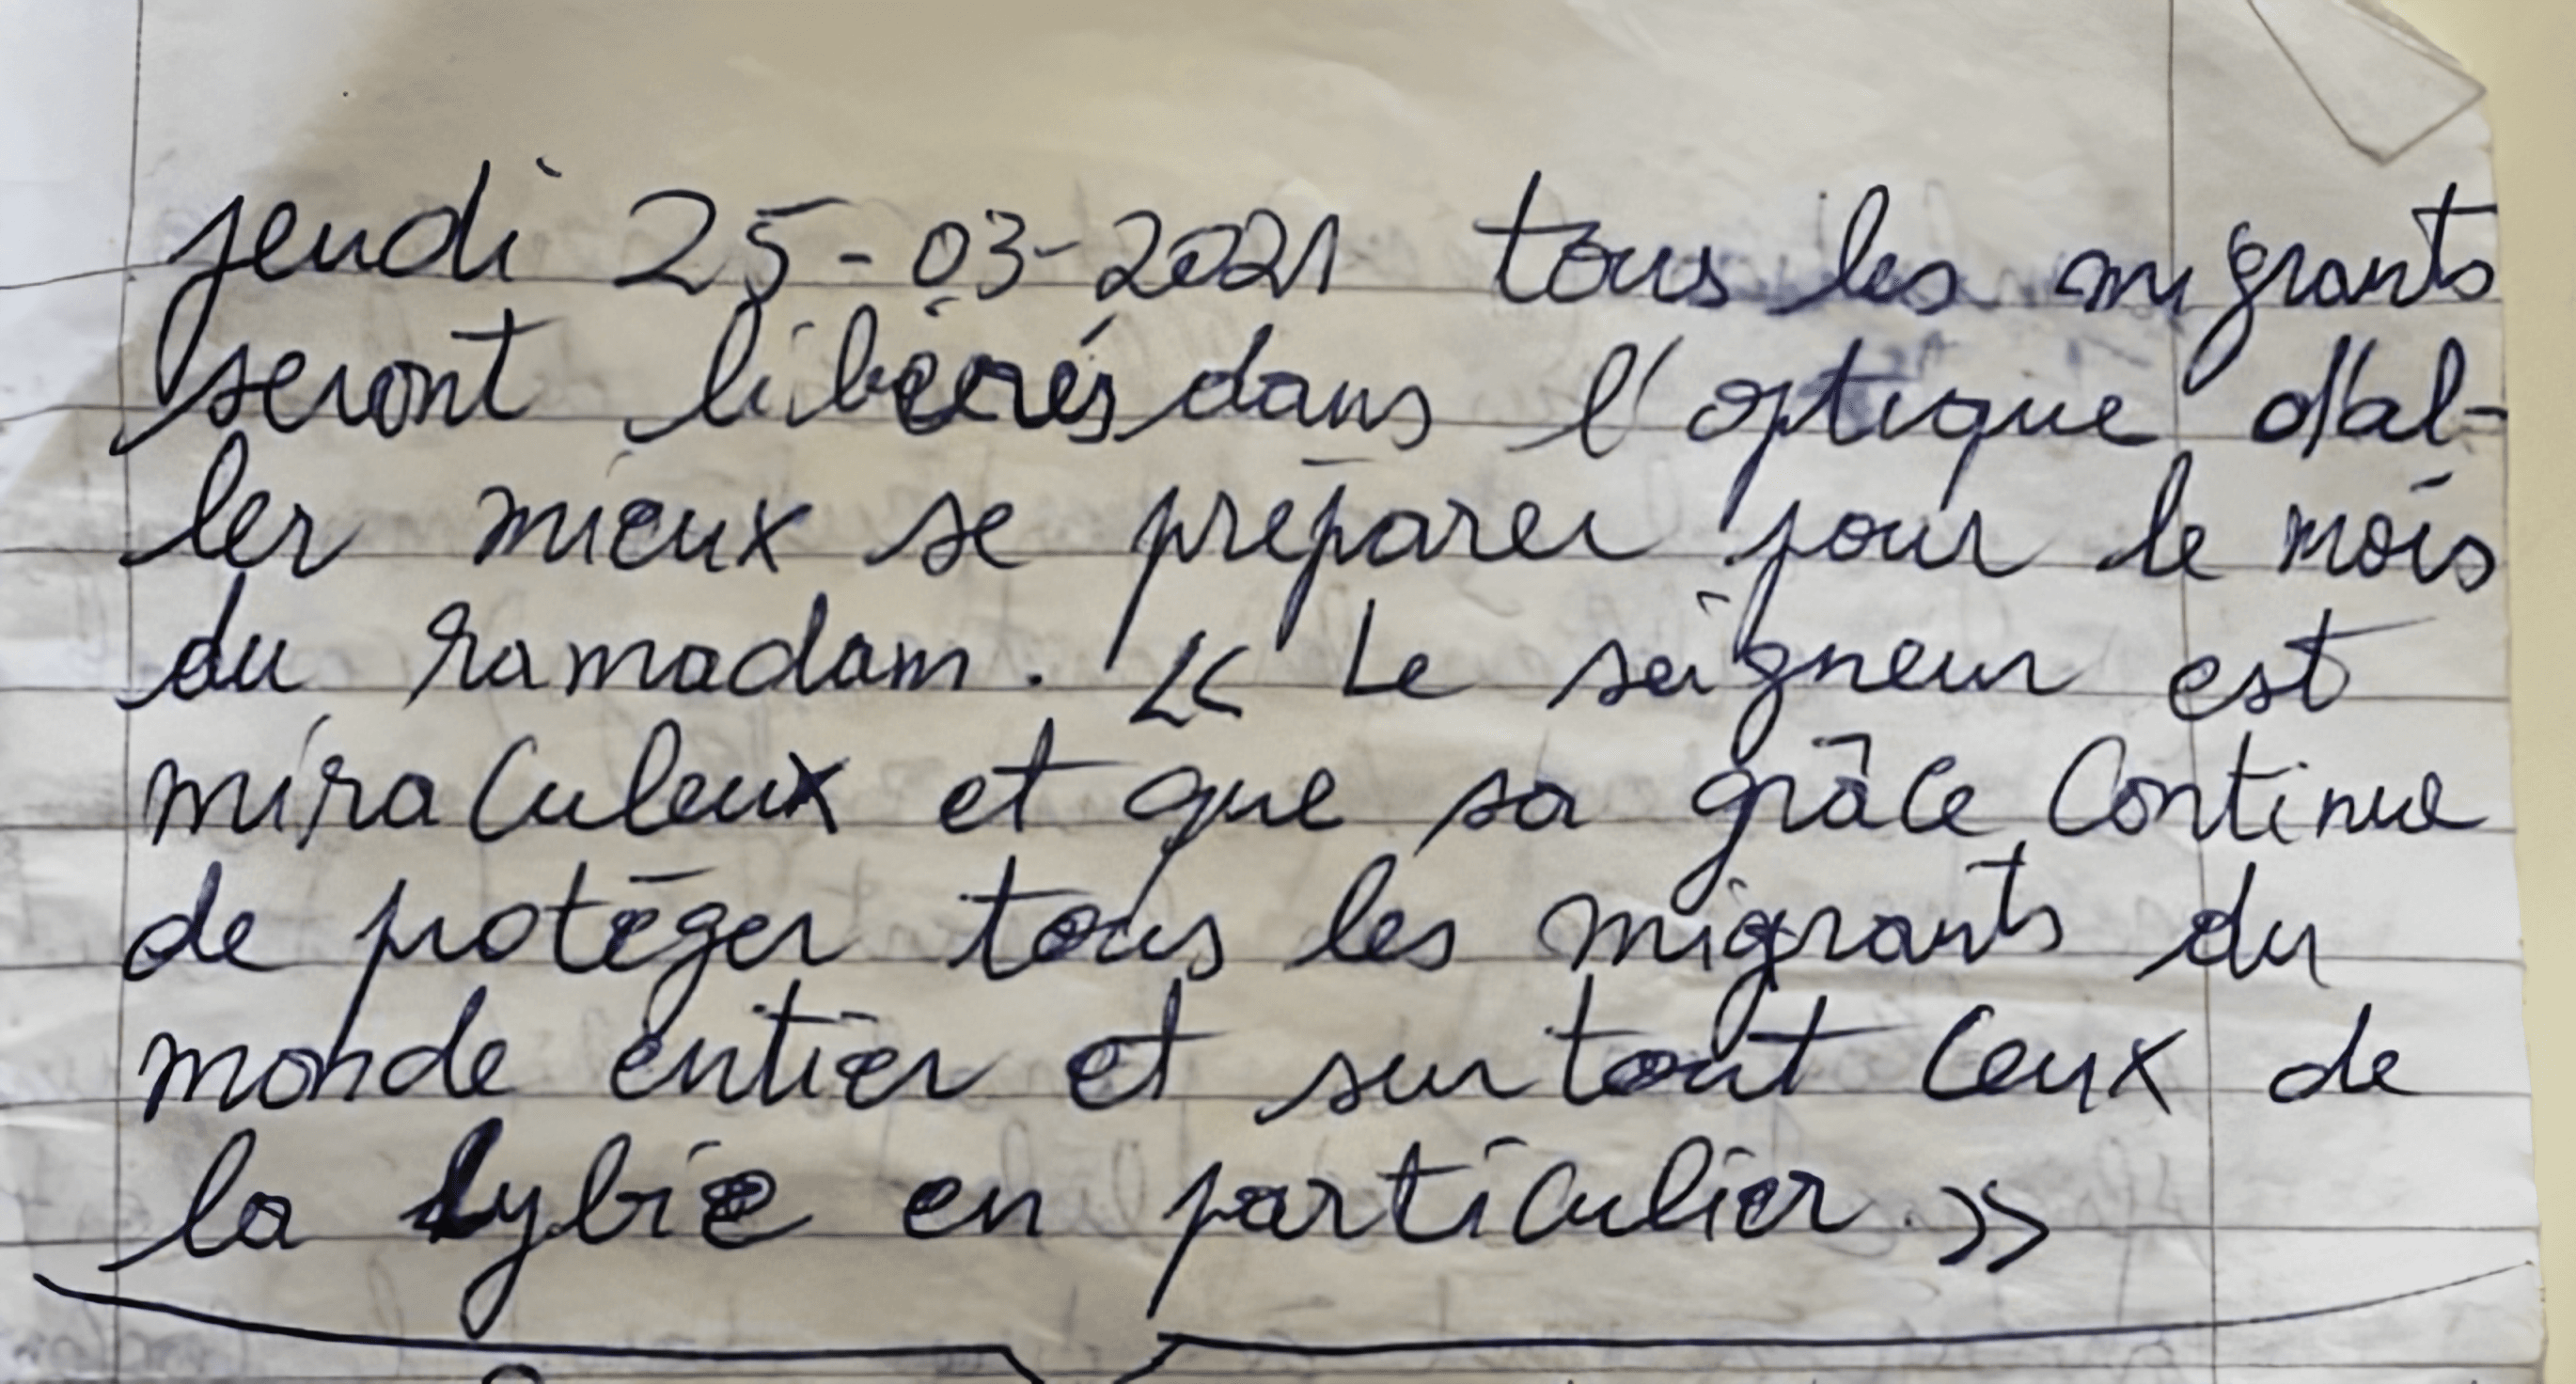 jeudi 25-03-2021 tous les migrants
seront libérés dans l'optique d'al-
ler mieux se préparer pour le mois
du ramadam. << Le seigneur est
miraculeux et que sa grâce continue
de protéger tous les migrants du
monde entier et surtout ceux de
la Lybie en particulier. >>